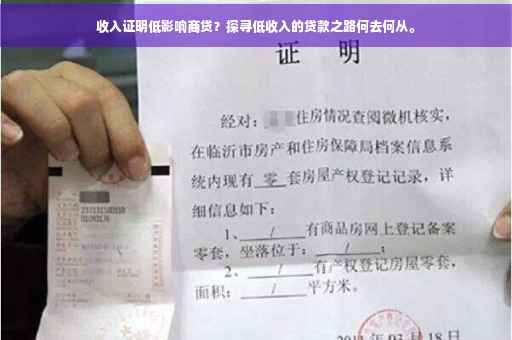 收入证明低影响商贷？探寻低收入的贷款之路何去何从。
证 明
经对：住房情况查阅微机核实，
在临沂市房产和住房保障局档案信息系
统内现有 零 套房屋产权登记记录，详
细信息如下：
1、 / 有商品房网上登记备案
零套，坐落位于： / ；
2、 / 有产权登记房屋零套，
面积： / 平方米。